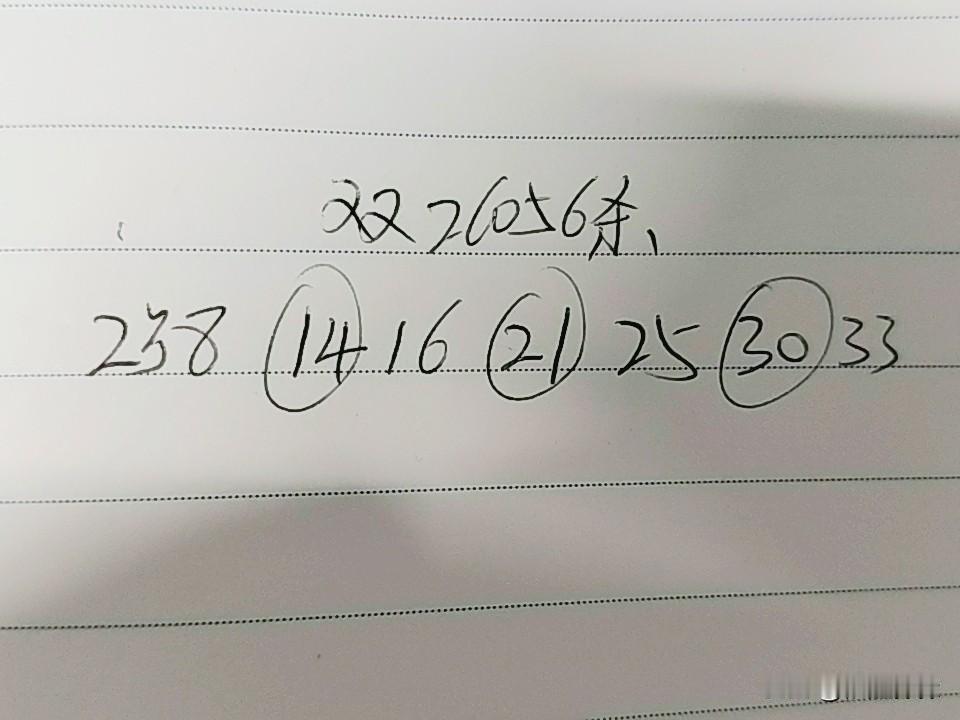 双226056杀、
238 14 16 21 25 30 33